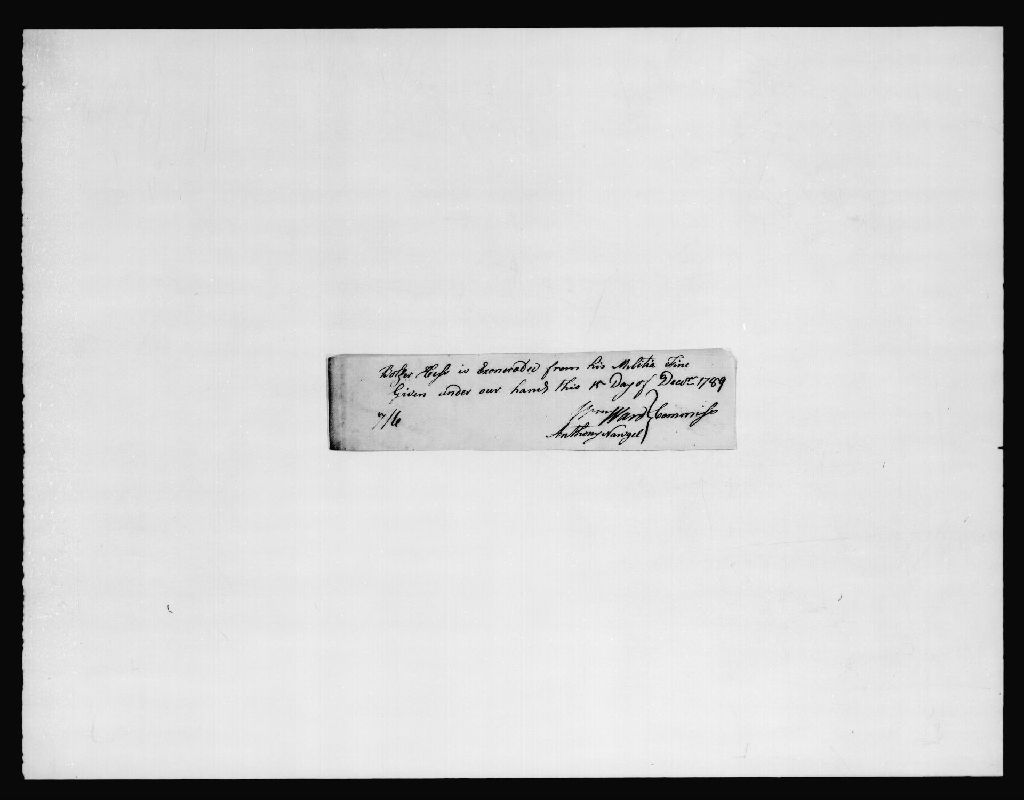 is Exonerated from his Militia Fine
Given under our hands this 15 Day of Decr. 1789
7/6 Wm Ward } Commiss
Anthony Nawgel